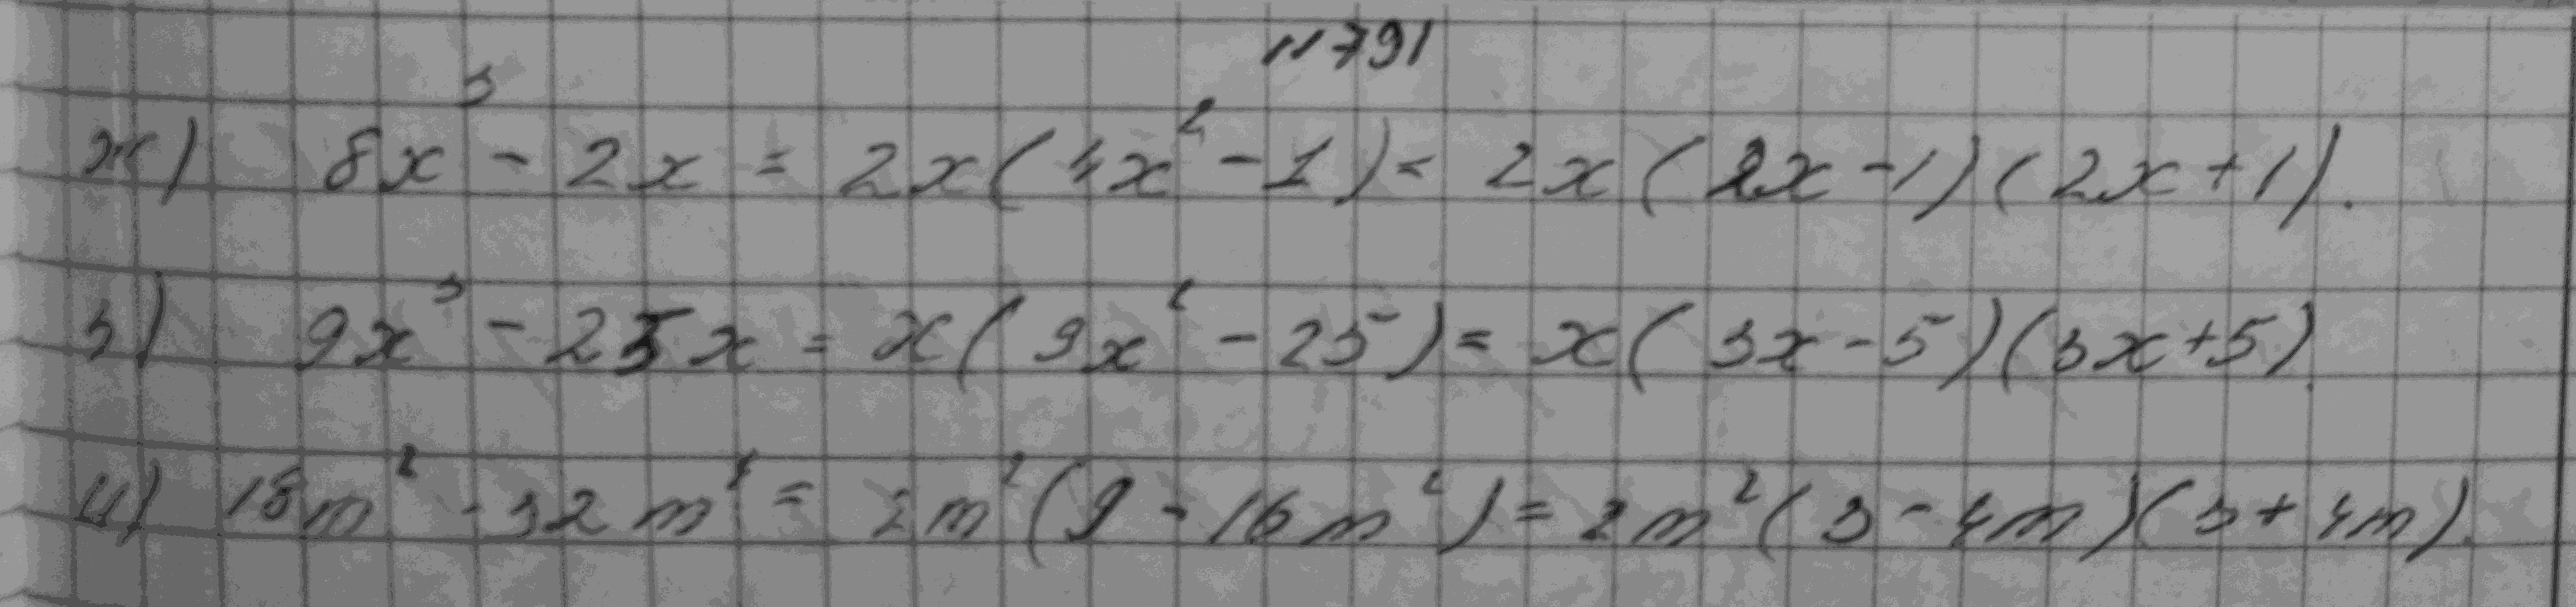 №791
ж) 8x³ - 2x = 2x(4x² - 1) = 2x(2x - 1)(2x + 1).
з) 9x³ - 25x = x(9x² - 25) = x(3x - 5)(3x + 5).
и) 18m² - 32m⁴ = 2m²(9 - 16m²) = 2m²(3 - 4m)(3 + 4m).